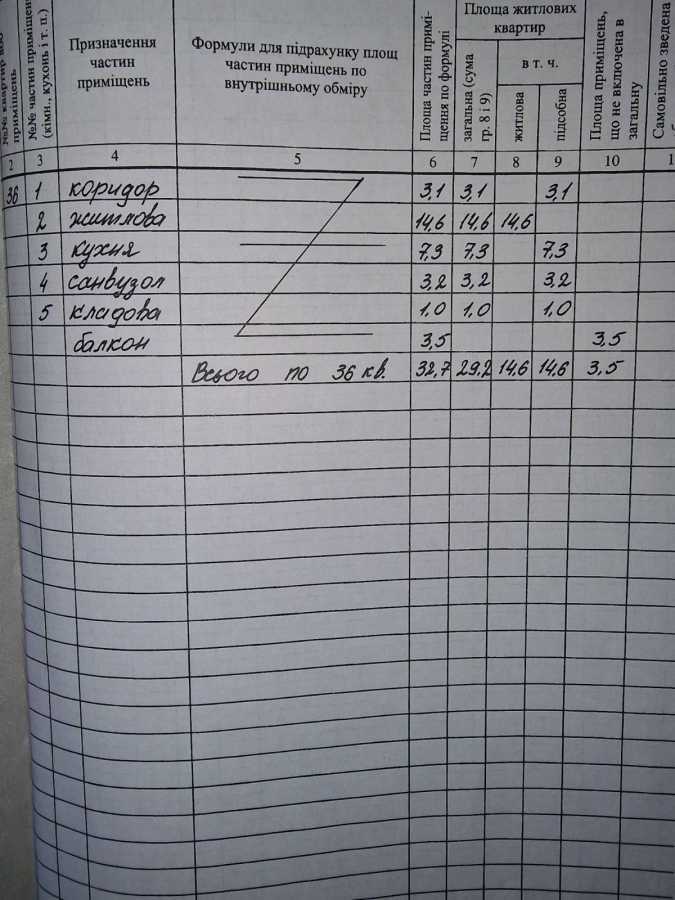 №№ квартир або приміщень
№№ частин приміщень (кімн., кухонь і т. п.)
Призначення частин приміщень
Формули для підрахунку площ частин приміщень по внутрішньому обміру
Площа частин приміщення по формулі
Площа житлових квартир
загальна (сума гр. 8 і 9)
в т. ч.
житлова
підсобна
Площа приміщень, що не включена в загальну
Самовільно зведена
2 3 4 5 6 7 8 9 10 1
36 1 коридор 3,1 3,1 3,1
2 житлова 14,6 14,6 14,6
3 кухня 7,3 7,3 7,3
4 санвузол 3,2 3,2 3,2
5 кладова 1,0 1,0 1,0
балкон 3,5 3,5
Всього по 36 кв. 32,7 29,2 14,6 14,6 3,5